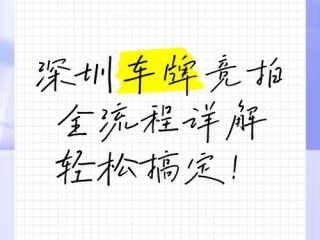 深圳车牌竞拍
全流程详解
轻松搞定！